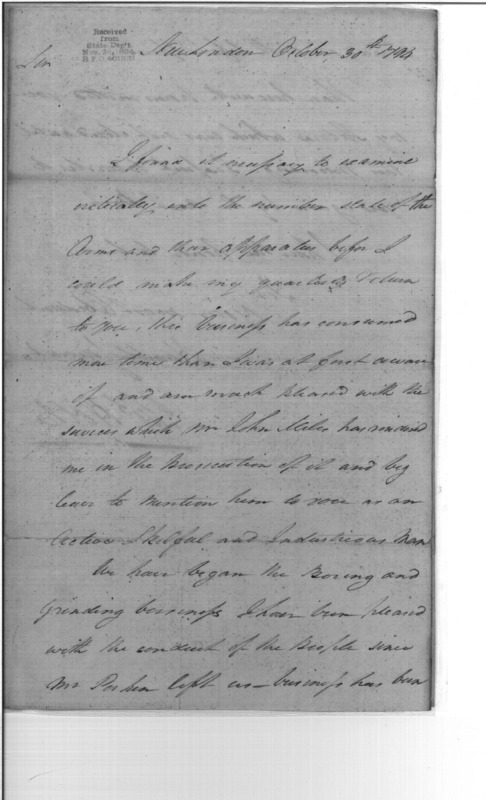 Received
from
State Dept.
Sir New London October 30th 1794
I find it necessary to examine
into the number state of the
Arms and their apparatus befor I
could make my quarterly Return
to you, this business has consumed
more time than I was at first aware
of and am much pleased with the
services which Mr John Miles has rendered
me in the prosecution of it and beg
leave to mention him to you as an
Active Skilful and Industrious Man
We have began the Boring and
Grinding business I have been pleased
with the conduct of the People since
Mr left us - business has been